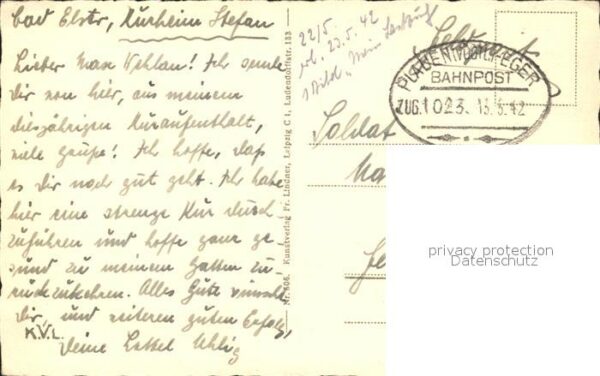 Bad Elster, Kurheim Stefan
Lieber Max Wehlan! Ich sende
Dir von hier, aus meinem
diesjährigen Kuraufenthalt,
viele Grüße! Ich hoffe, daß
es Dir noch gut geht. Ich habe
hier eine strenge Kur durch-
zuführen und hoffe ganz ge-
sund zu meinem Gatten zu-
rückzukehren. Alles Gute wünscht
Dir, und weiteren guten Erfolg,
Deine Uhlig
K.V.L.
Nr. 606. Kunstverlag Fr. Lindner, Leipzig C 1, Ludendorffstr. 153
22/5.
23.5.42
1 Bild „Mein
Feldpost
PLAUEN (VOGTL) - EGER
BAHNPOST
ZUG 1023. 13.5.42
Soldat
privacy protection
Datenschutz